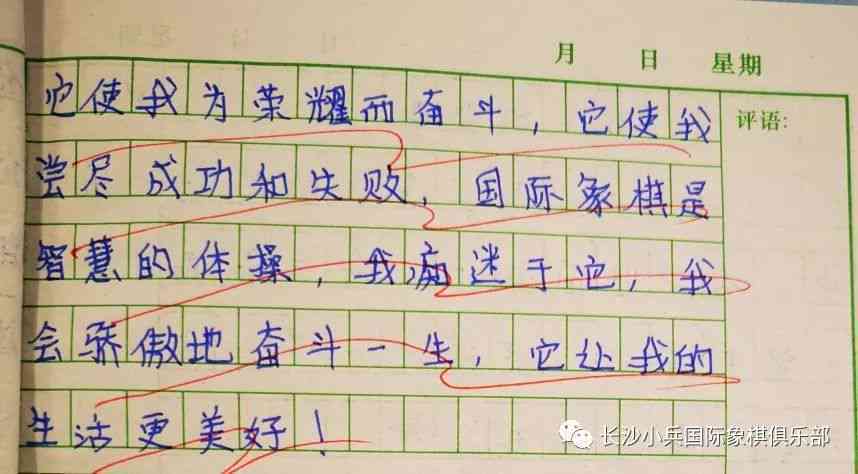 月 日 星期
评语:
它使我为荣耀而奋斗，它使我
尝尽成功和失败，国际象棋是
智慧的体操，我痴迷于它，我
会骄傲地奋斗一生，它让我的
生活更美好！
长沙小兵国际象棋俱乐部